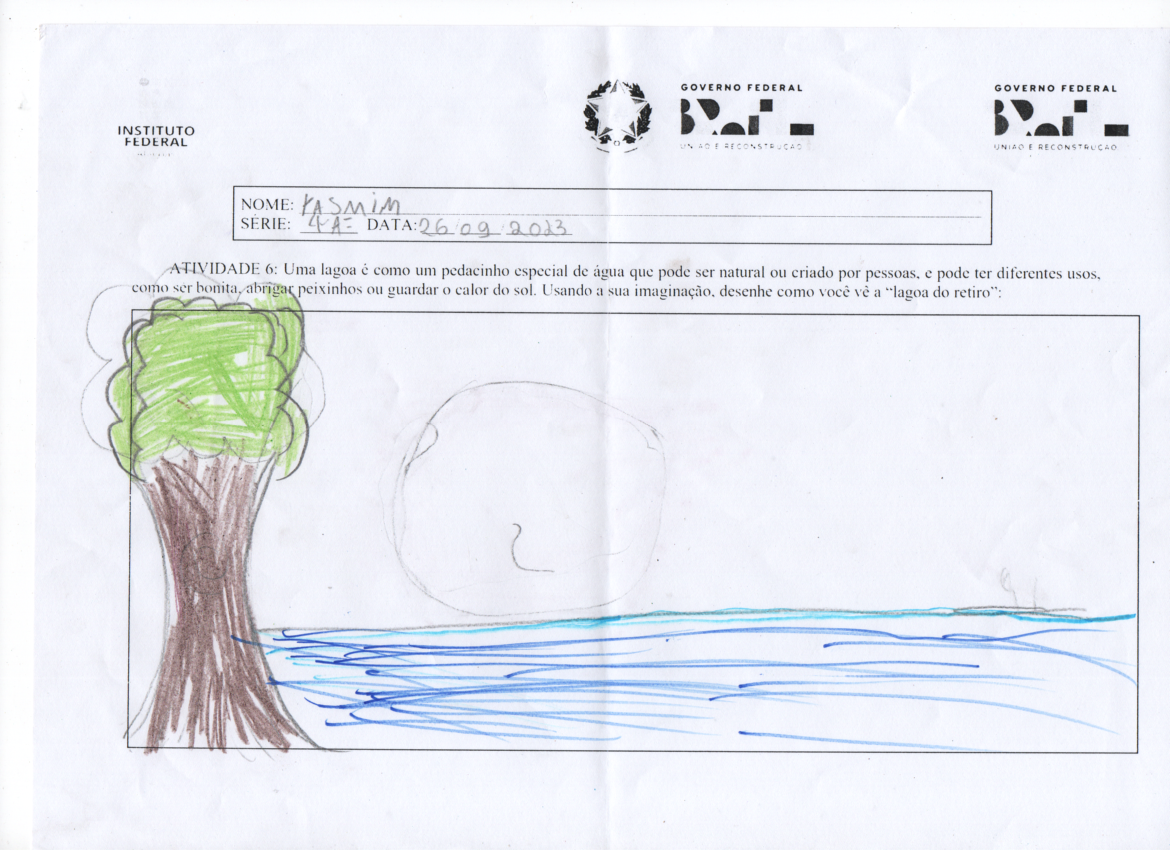 INSTITUTO
FEDERAL
GOVERNO FEDERAL
BRASIL
UNIÃO E RECONSTRUÇÃO
GOVERNO FEDERAL
BRASIL
UNIÃO E RECONSTRUÇÃO
NOME: YASMIM
SÉRIE: 4ªA= DATA: 26/09/2023
ATIVIDADE 6: Uma lagoa é como um pedacinho especial de água que pode ser natural ou criado por pessoas, e pode ter diferentes usos,
como ser bonita, abrigar peixinhos ou guardar o calor do sol. Usando a sua imaginação, desenhe como você vê a “lagoa do retiro”: